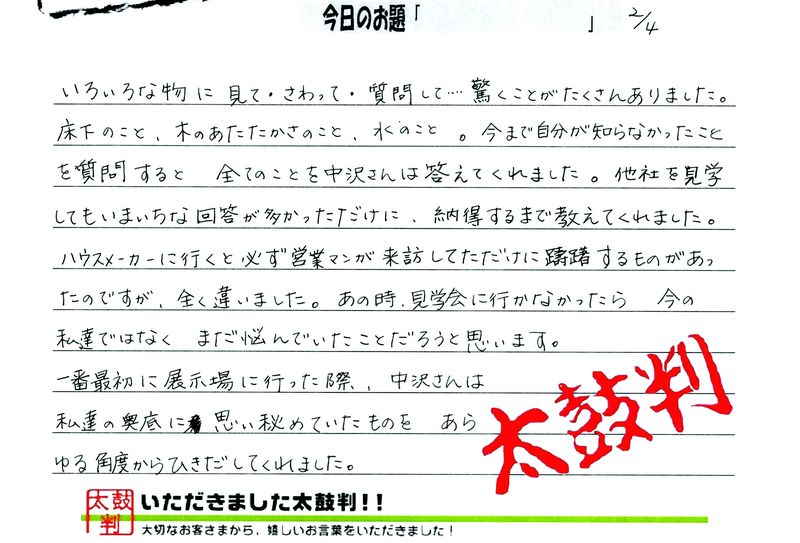 今日のお題「 」 2/4
いろいろな物に 見て・さわって・質問して…驚くことがたくさんありました。
床下のこと、木のあたたかさのこと、水のこと 。今まで自分が知らなかったこと
を質問すると 全てのことを中沢さんは答えてくれました。他社を見学
してもいまいちな回答が多かっただけに、納得するまで教えてくれました。
ハウスメーカーに行くと必ず営業マンが来訪してただけに躊躇するものがあっ
たのですが、全く違いました。あの時、見学会に行かなかったら 今の
私達ではなく まだ悩んでいたことだろうと思います。
一番最初に展示場に行った際、中沢さんは
私達の奥底に思い秘めていたものを あら
ゆる角度からひきだしてくれました。
太鼓判
太鼓判
いただきました太鼓判!!
大切なお客さまから、嬉しいお言葉をいただきました!